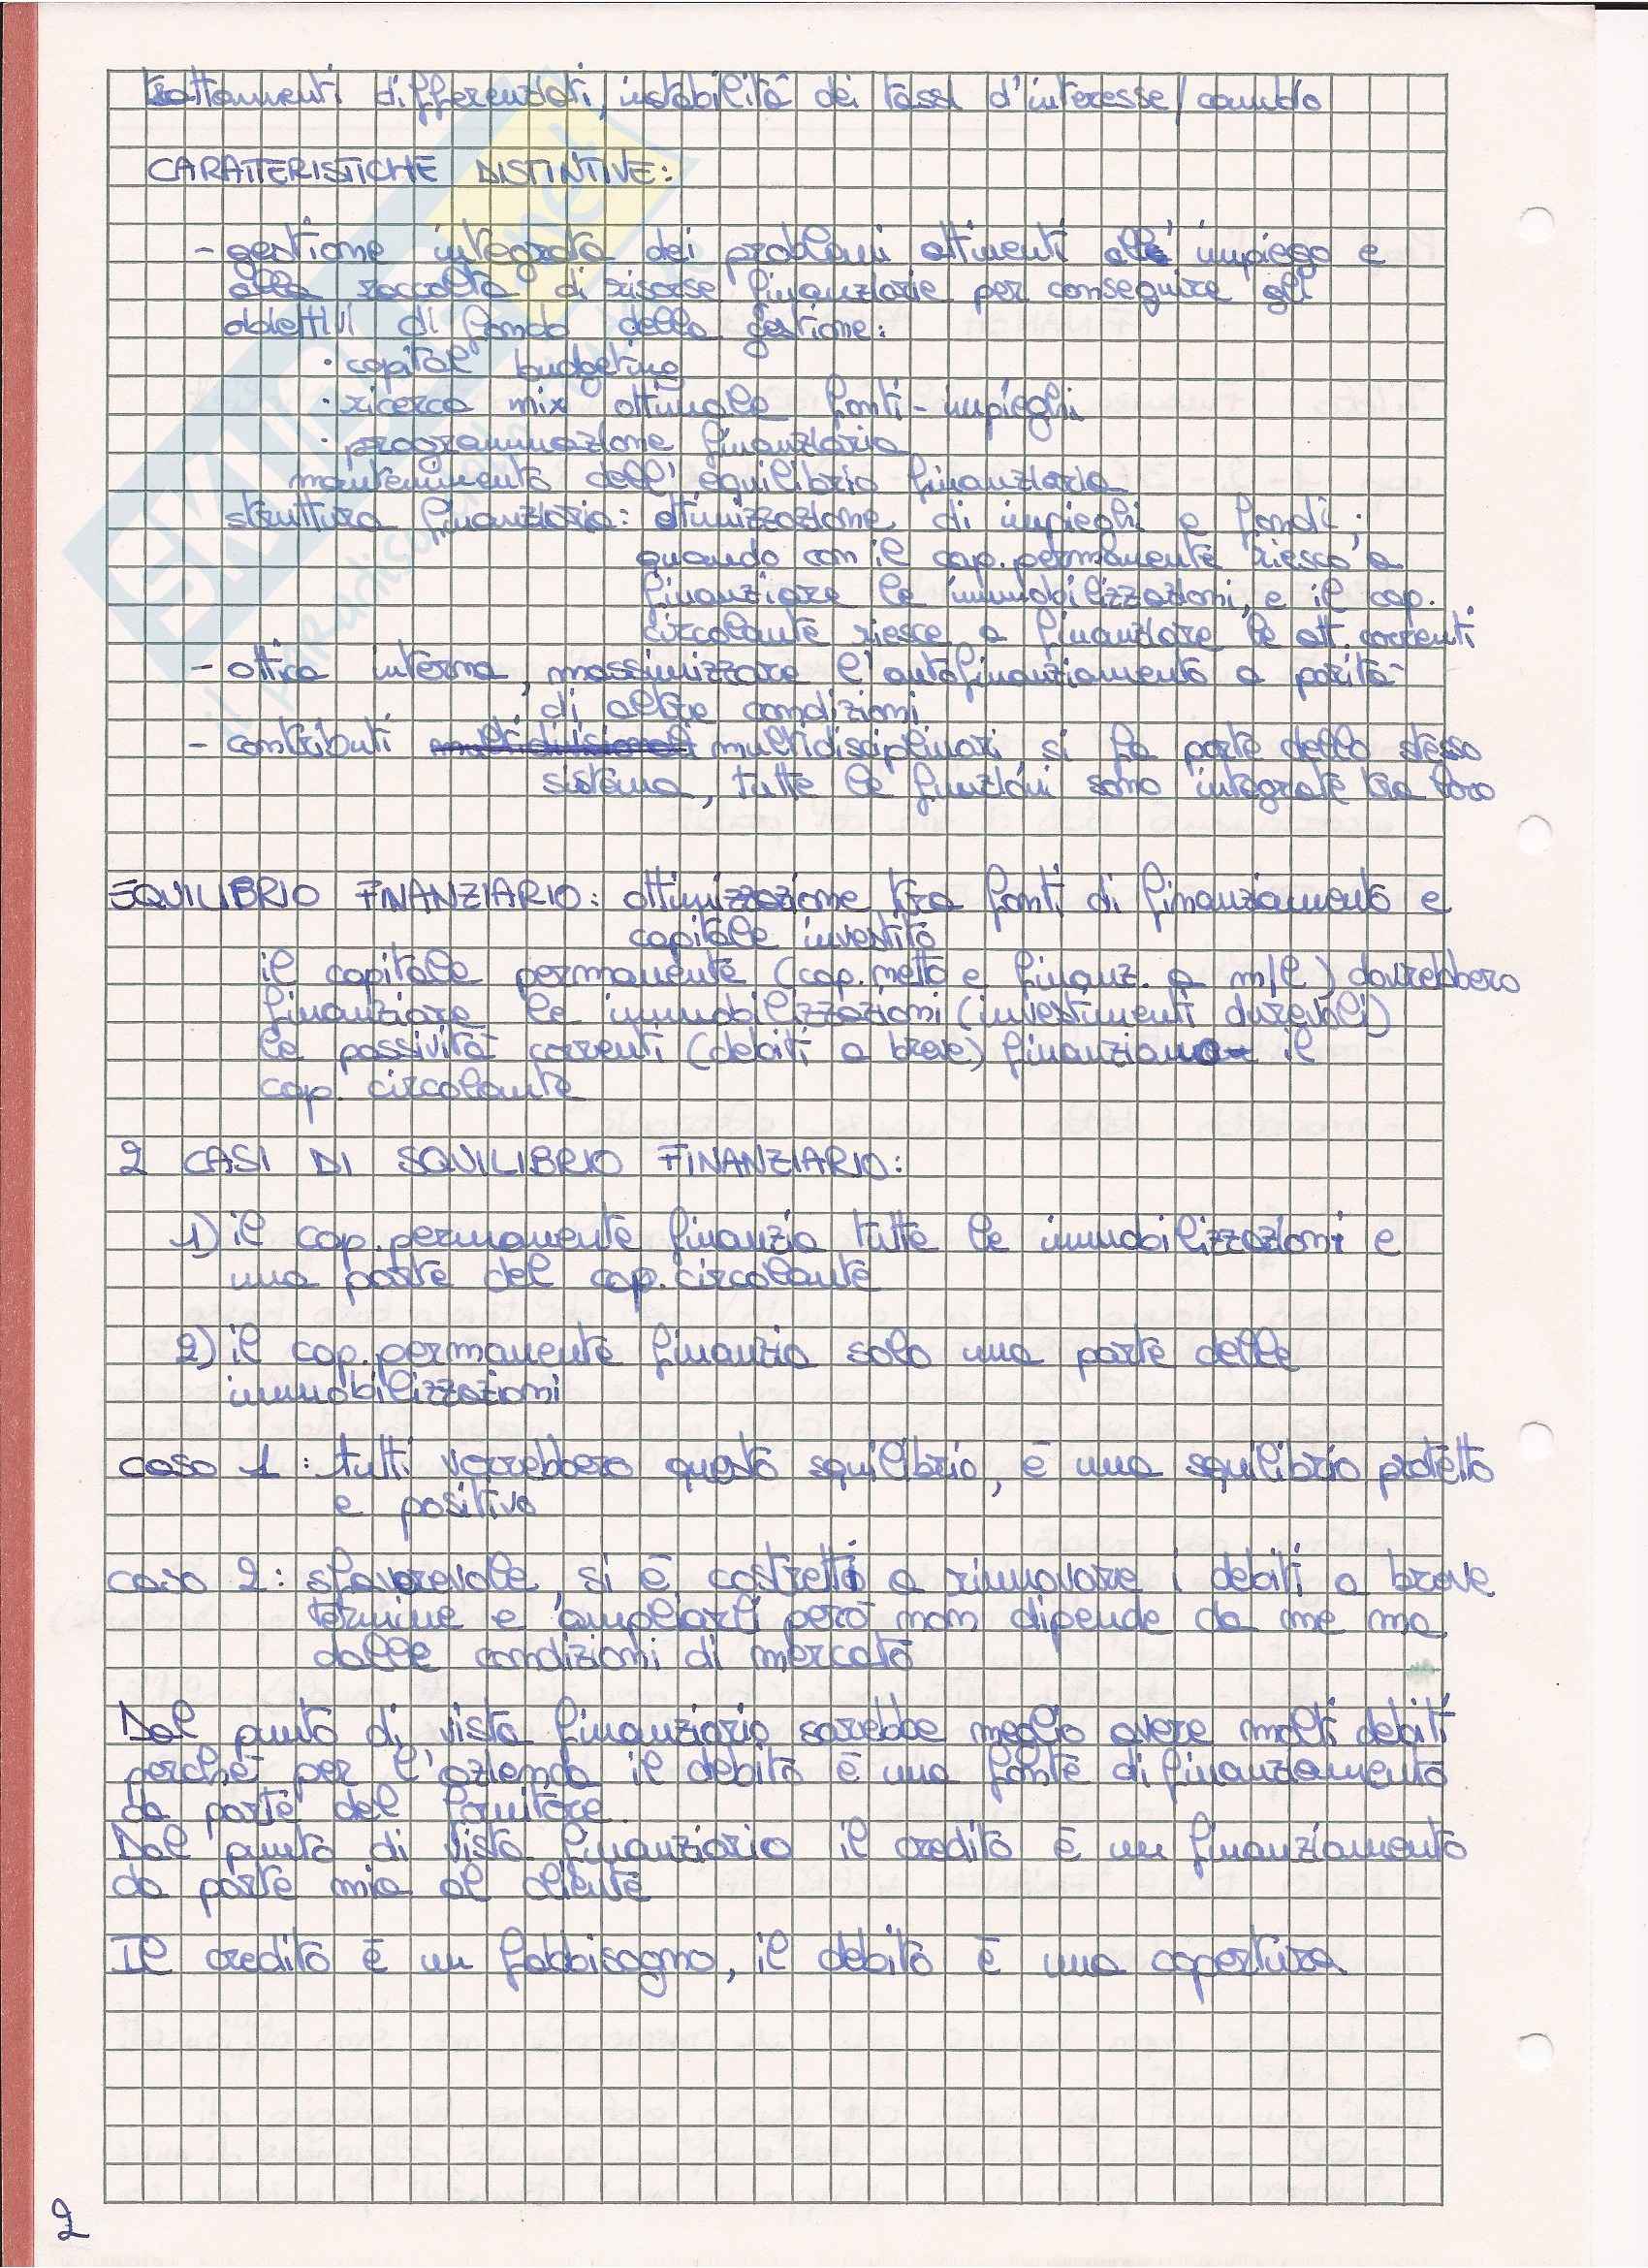 trattamenti differenziati, instabilità dei tassi d'interesse/cambio
CARATTERISTICHE DISTINTIVE:
- gestione integrata dei problemi attinenti all'impiego e
alla raccolta di risorse finanziarie per conseguire gli
obiettivi di fondo della gestione:
· capital budgeting
· ricerca mix ottimale fonti - impieghi
· programmazione finanziaria
mantenimento dell'equilibrio finanziario
struttura finanziaria: ottimizzazione di impieghi e fondi;
quando con il cap. permanente riesco a
finanziare le immobilizzazioni, e il cap.
circolante riesce a finanziare le att. correnti
- ottica interna, massimizzare l'autofinanziamento a parità
di altre condizioni
- contributi multidisciplinari, si fa parte dello stesso
sistema, tutte le funzioni sono integrate tra loro
EQUILIBRIO FINANZIARIO: ottimizzazione tra fonti di finanziamento e
capitale investito
il capitale permanente (cap. netto e finanz. a m/l) dovrebbero
finanziare le immobilizzazioni (investimenti durevoli)
le passività correnti (debiti a breve) finanziano il
cap. circolante
2 CASI DI SQUILIBRIO FINANZIARIO:
1) il cap. permanente finanzia tutte le immobilizzazioni e
una parte del cap. circolante
2) il cap. permanente finanzia solo una parte delle
immobilizzazioni
caso 1: tutti vorrebbero questo squilibrio, è uno squilibrio protetto
e positivo
caso 2: sfavorevole, si è costretti a rinnovare i debiti a breve
termine e ampliarli però non dipende da me ma
dalle condizioni di mercato
Dal punto di vista finanziario sarebbe meglio avere molti debiti
perché per l'azienda il debito è una fonte di finanziamento
da parte del fornitore.
Dal punto di vista finanziario il credito è un finanziamento
da parte mia al cliente
Il credito è un fabbisogno, il debito è una copertura
2